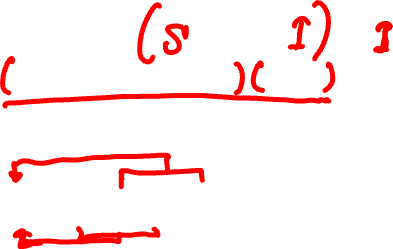 (S I) I
( )( )